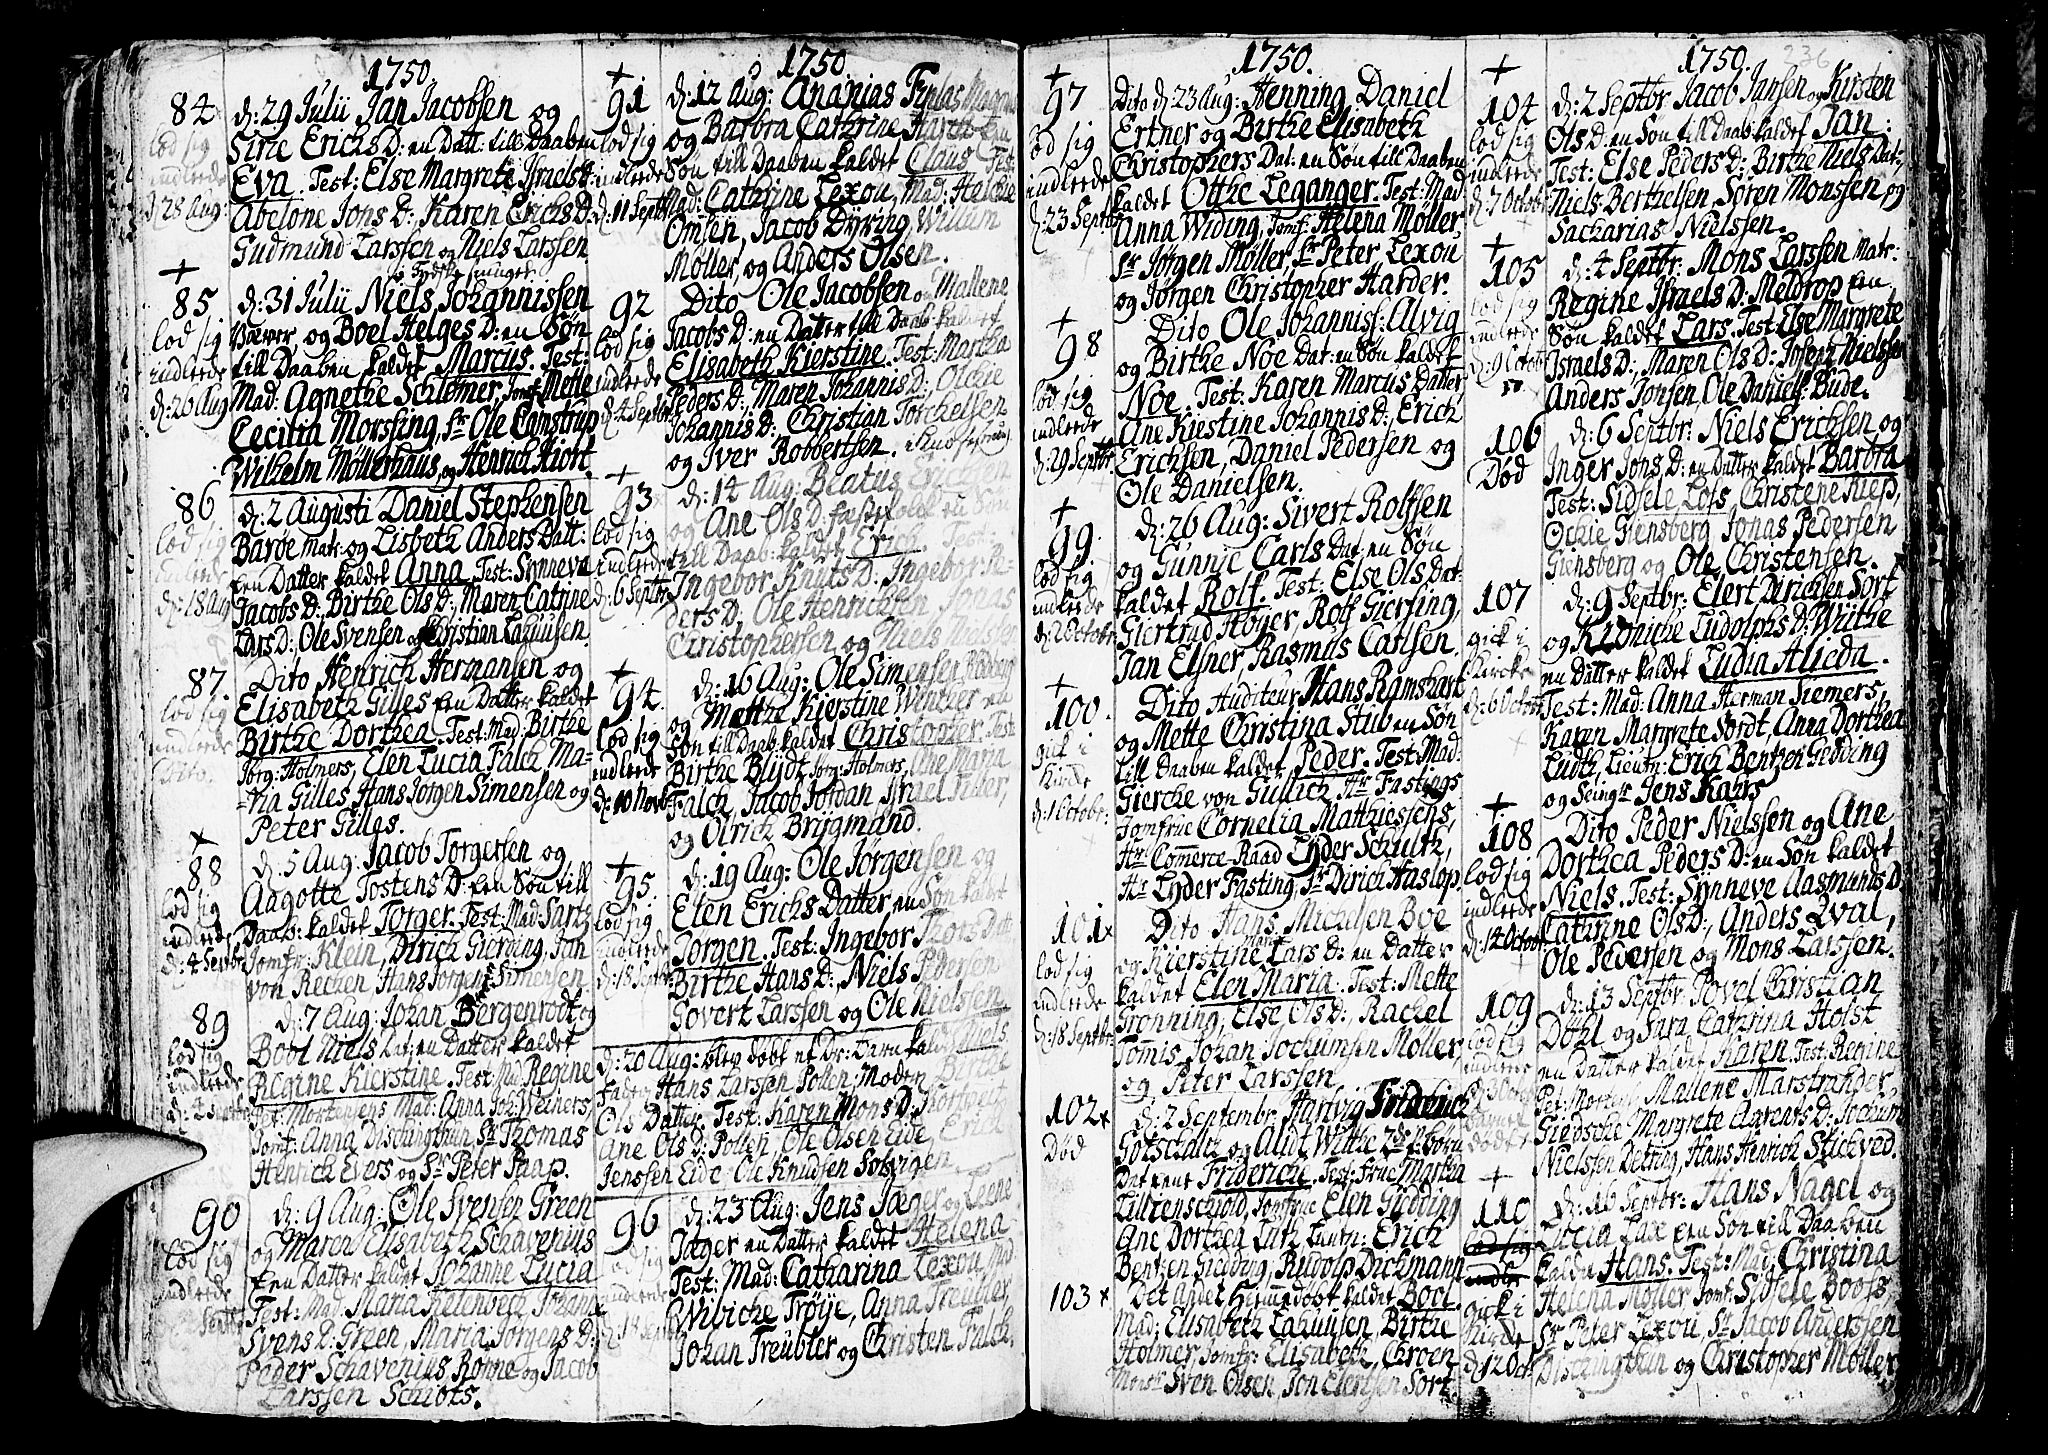 1750.
84
lod sig
indleede
d: 28 Aug:
d: 29 Julii Jan Jacobsen og
Sirie Erichs D: en Datt: till Daaben
Eva. Test: Else Margrete Israels D:
Abelone Jons D: Karen Erichs D:
Gudmund Larssen og Niels Larssen
+
85
lod sig
indleede
d: 20 Aug
d: 31 Julii Niels Johannissen
Væver, og Boel Helges D: en Søn
till Daaben kaldet Marcus. Test:
Mad: Agnethe Schlømer, Jomf: Mette
Cecilia Morssing, Sr Ole Camstrup
Wilhelm Møllerhaus, og Henrich Hiort.
86
lod sig
indleede
d: 18 Aug
d: 2 Augusti Daniel Stephensen
Barbe Matr: og Lisbeth Anders Datt:
Een Datter kaldet Anna. Test: Synneve
Jacobs D: Birthe Ols D: Maren Catrine
Lars D: Ole Svensen og Christian Lauuisen.
87.
lod sig
indleede
Dito.
Dito Henrich Hermansen og
Elisabeth Gilles Een Datter kaldet
Birthe Dorthea. Test: Mad: Birthe
Jørg: Holmers, Elen Lucia Falch Ma-
-ria Gilles, Hans Jørgen Simensen og
Peter Gilles.
+
88
lod sig
indleede
d: 4 Septbr
d: 5 Aug: Jacob Torgersen og
Aagotte Tostens D: Een Søn till
Daab: kaldet Torger. Test: Mad: Sartz
Jomfr: Klein, Dirich Giersing, Jan
von Recken Hans Jørgen Simensen
89
lod sig
indleede
d: 7 Aug: Johan Bergenrodt og
Boel Niels Dat: en Datter kaldet
Regine Kierstine. Test: Mad: Regine
Pet: Mortensens Mad: Anna Joh: Weiners,
Jomf: Anna Dischingthun Sr Thomas
Henrich Evers og Sr Peter Paap.
90
lod sig
indleede
d: 9 Aug: Ole Svensen Green
og Maren Elisabeth Schavenius
Een Datter kaldet Johanne Lucia
Test: Mad: Maria
Svens D: Green, Maria Jørgens D:
Peder Schavenius Rønne og Jacob
Larssen Schiøts.
1750
+
91
lod sig
indleede
d: 11 Septbr
d: 12 Aug: Ananias
og Barbra Cathrine
Søn till Daaben kaldet Claus Test:
Mad: Cathrine Lexou, Mad: Helchie
Omsen, Jacob Dyring, Willum
Møller, og Anders Olsen.
92
lod sig
indleede
d: 4 Septbr
Dito Ole Jacobsen og Mallene
Jacobs D: en Datter till Daab kaldet
Elisabeth Kierstine. Test: Martha
Peders D:, Maren Johannis D:, Olchie
Johannis D: Christian Torchelsen
og Iver Robbertsen.
+
93
lod sig
indleede
d: 6 Septbr
d: 14 Aug: Beatus Erichsen
og Ane Ols D: en Søn
till Daab: kaldet Erich. Test:
Ingebor Knuts D: Ingebor Pe-
ders D: Ole Henrichsen Jonas
Christophersen og Niels
+
94.
lod sig
indleede
d: 10 Novbr
d: 16 Aug: Ole Simensen
og Mætthe Kierstine Wentzer en
Søn till Daab: kaldet Christopher. Test:
Birthe Blydt Jørg: Holmers, Ane Maria
Falch, Jacob Jordan Israel Feller,
og Olrich Brygmand.
+
95.
lod sig
indleede
d: 18 Septbr
d: 19 Aug: Ole Jørgensen og
Elen Erichs Datter, en Søn kaldet
Jørgen. Test: Ingebor Thors Datt:
Birthe Hans D:, Niels Pedersen
Govert Larssen og Ole Nielssen
d: 20 Aug: blev døbt af Dr: Darn kaldet Niels
Fader Hans Larssen Pollen, Moder Birthe
Ols Datter. Test: Karen Mons D:
Ane Ols D: Pollen, Ole Olsen Eide, Erich
Jenssen Eide Ole Knudsen Solvigen
96
d: 23 Aug: Jens Jæger og Leene
Jæger en Datter kaldet Helena
Test: Mad: Catharina Lexou Mad
Wibiche Trøye, Anna Treubler,
Johan Treubler og Christen Falch.
1750.
+
97
lod sig
indleede
d: 23 Septbr
Dito d: 23 Aug: Henning Daniel
Ertner og Birthe Elisabeth
Christophers Dat: en Søn till Daaben
kaldet Otthe Leganger. Test: Mad
Anna Widing, Jomf: Helena Møller,
Sr Jørgen Møller, Sr Peter Lexou
og Jørgen Christopher Harder.
+
98
lod sig
indleede
d: 29 Septbr
Dito Ole Johannis: Alvig
og Birthe Noe Dat: en Søn kaldet
Noe. Test: Karen Marcus Datter,
Ane Kiestine Johannis D:, Erich
Erichsen, Daniel Pedersen og
Ole Danielsen.
+
99.
lod sig
indleede
d: 2 Octobr
d: 26 Aug: Sivert Rolfsen
og Gunnie Carls Dat: en Søn
kaldet Rolf. Test: Else Ols Dat:
Giertrud Høyer, Rolf Giersing,
Jan Elsner, Rasmus Carlsen.
+
100.
gick i
Kircke
d: 1 Octobr:
Dito Auditeur Hans Ramshart
og Mette Christina Stub en Søn
till Daaben kaldet Peder. Test: Mad:
Giercke von Gullich Hr Fastings
Jomfrue Cornelia Mathiessens,
Hr: Commerce-Raad Lyder Schultz,
Hr Lyder Fasting, Sr Dirich Haslop.
101 x
lod sig
indleede
d: 18 Septbr:
Dito Hans Michelsen Boe
og Kierstine Lars D: en Datter
kaldet Elen Maria. Test: Mette
Grønning, Else Ols D:, Rachel
Tomis Johan Jochumsen Møller,
og Peter Larssen
102 x
Død
d: 2 Septembr: Hartvig Friderich
Gotschalk og Aldt Witthe 2de p: børn
Det eene Friderich. Test: Frue Martha
Lillienschiold, Jomfrue Elen Gidding
Ane Dorthea Luth Lieutn: Erich
Bentzen Giedding, Rudolf Dichmann
103 x
Det andet hiemdøbt kaldet Boel.
Mad: Elisabeth Lauuisen, Birthe
Holmer, Jomfr: Elisabeth Chroen
Monsr Sven Olsen, Jon Elertsen Sort.
1750. 236
+
104
lod sig
indleede
d: 7 Octobr
d: 2 Septbr Jacob Jansen og Kirsten
Ols D: en Søn till Daab: kaldet Jan:
Test: Else Peders D:, Birthe Niels Dat:,
Niels Berthelsen, Søren Monssen og
Sacharias Nielssen.
+
105
lod sig
indleede
d: 9 Octobr
d: 4 Septbr: Mons Larssen Matr:
Regine Israels D: Meldrop en
Søn kaldet Lars. Test: Else Margrete
Israels D:, Maren Ols D: Johan Nielssen
Anders Jonsen, Ole Daniels: Bude.
106
Død
d: 6 Septbr: Niels Erichsen og
Inger Jons D: en Datter kaldet Barbra
Test: Sidsele Lofs Christene Riep,
Ochie Giensberg Jonas Pedersen
Giensberg og Ole Christensen.
107
gick i
Kircke
d: 6 Octobr
d: 9 Septbr: Elert Dirichsen Sort
og Kronicke Ludolphs D: Wüthe
en Datter kaldet Ludia Alieda.
Test: Mad: Anna Herman Siemers,
Karen Margrete Sordt, Anna Dorthea
Ludt, Lieutn: Erich Bentzen Gedding
og Seingr Jens Kahrs
+
108
lod sig
indleede
d: 14 Octobr
Dito Peder Nielssen og Ane
Dorthea Peders D: en Søn kaldet
Niels. Test: Synneve Aasmunds D:
Cathrine Ols D:, Anders Qval,
Ole Pedersen og Mons Larssen.
109
lod sig
indleede
d: 13 Septbr Povel Christian
Døhl og Sara Cathrina Holst
en Datter kaldet Karen. Test: Regine
Pet: Morten: Mallene Marstrander
Giedsche Margrete Arents D: Jochum
Nielssen Detring, Hans Henrich Stichved.
+
110
gick i
Kircke
d: 12 Oct
d: 16 Septbr: Hans Nagel og
Lucia Lax Een Søn till Daaben
kaldet Hans. Test: Mad: Christina
Helena Møller Jomf: Sidsele Boofs
Sr Peter Lexou, Sr Jacob Anderssen
Dischingthun og Christopher Møller